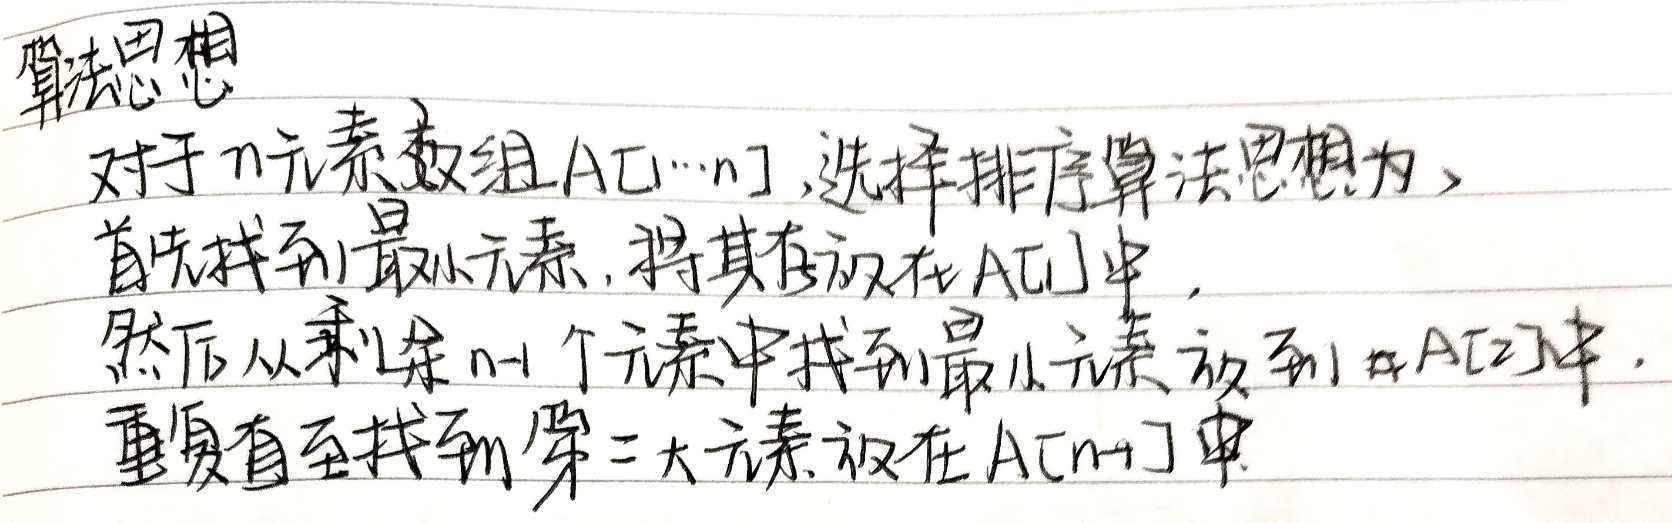 算法思想
对于n元素数组A[1…n],选择排序算法思想为、
首先找到最小元素,将其存放在A[1]中,
然后从剩余n-1个元素中找到最小元素放到在A[2]中.
重复直至找到第二大元素放在A[n-1]中